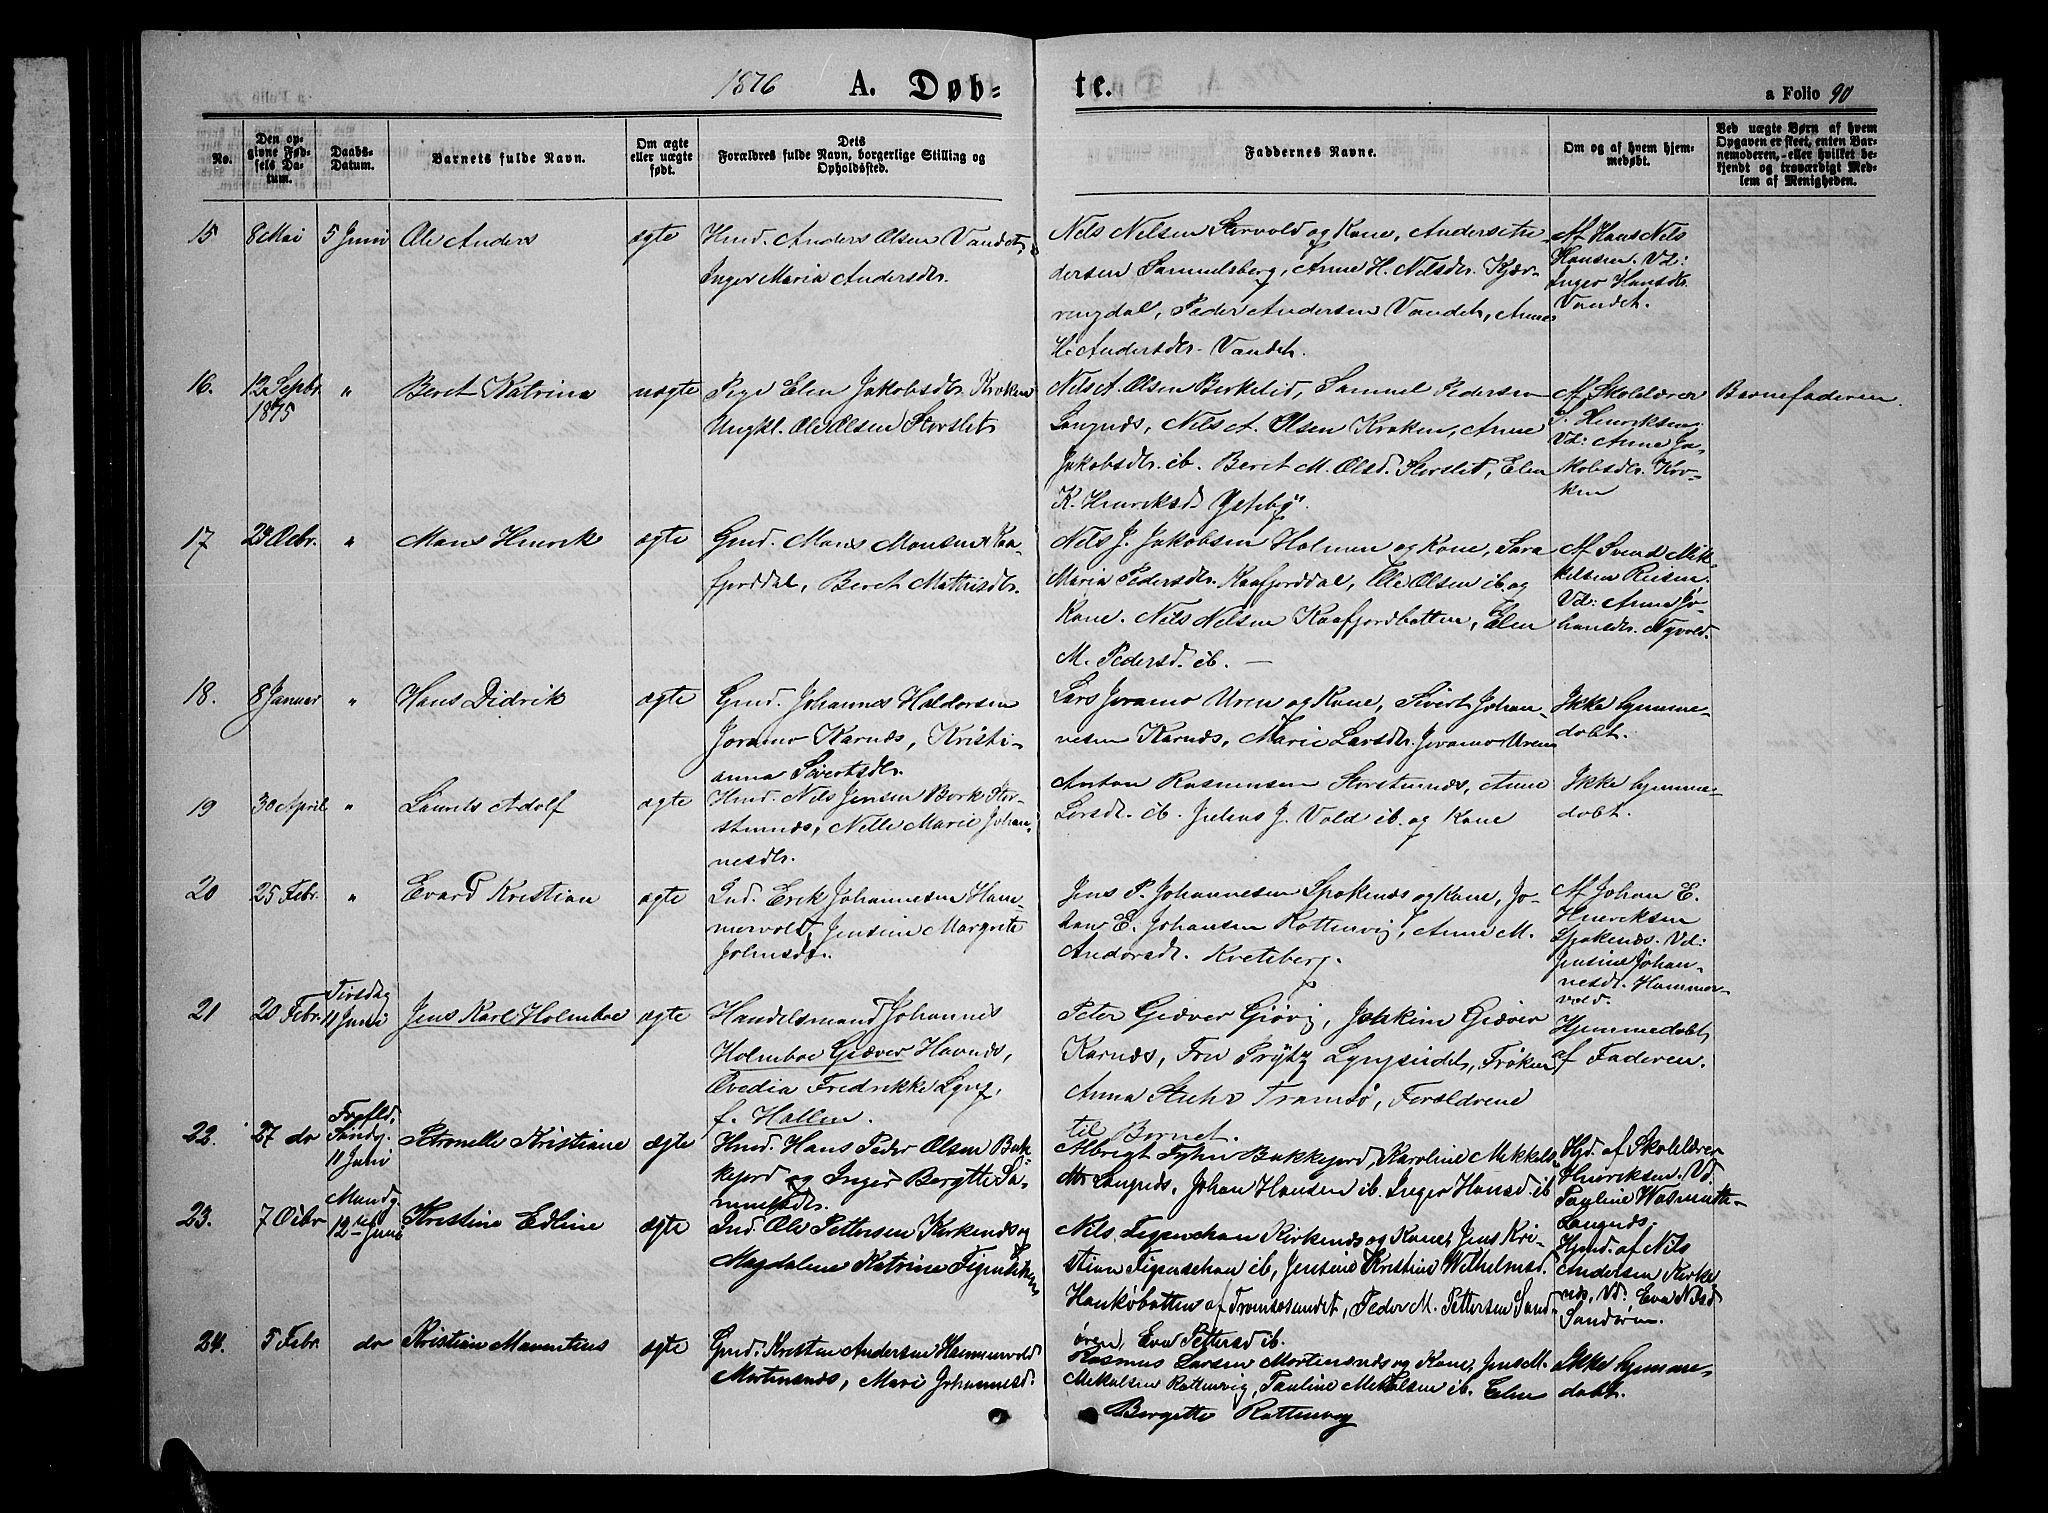 1876 A. Døb=
te.
a Folio 90
No.
Den op-
givne Fød-
sels Da-
tum.
Daabs-
Datum.
Barnets fulde Navn.
Om ægte
eller uægte
født.
Dets
Forældres fulde Navn, borgerlige Stilling og
Opholdssted.
Faddernes Navne.
Om og af hvem hjem-
medøbt.
Ved uægte Børn af hvem
Opgaven er skeet, enten Bar-
nemoderen, - eller hvilket be-
kjendt og troværdigt Med-
lem af Menigheden.
15 8 Mai 5 Juni Ole Anders ægte Hmd. Anders Olsen Vandet,
Inger Maria Andersdtr.
Nels Nelsen Storvold og Kone, Anders An-
dersen Samuelsberg, Anne H. Nelsdtr. Kjær-
ringdal, Peder Andersen Vandet, Anne
H. Andersdtr. Vandet.
Af Hans Nels
Hansen. Vd:
Inger Hansdtr.
Vandet.
16. 12 Septbr.
1875
" Beret Katrina uægte Pige Elen Jakobsdtr. Kroken
Ungkl. Ole Olsen Storslet
Nels A. Olsen Birkelid, Samuel Pedersen
Langnæs, Nils A. Olsen Kroken, Anne
Jakobsdtr. ib. Beret M. Olsd. Storslet, Elen
K. Henriksd.
Af Skolelærer
S. Henriksen.
Vd: Anne Ja-
kobsdtr. Kro-
ken
Barnefaderen.
17 29 Debr. " Mons Henrik ægte Gmd. Mons Monsen Kaa-
fjorddal, Beret Mathisdtr.
Nels J. Jakobsen Holmen og Kone, Sara
Maria Pedersdtr. Kaafjorddal, Ole Olsen ib. og
Kone. Nels Nelsen Kaafjordbotten, Elen
M. Pedersd. ib. —
Af Svend Mik-
kelsen Reisen.
Vd: Anne Jo-
hansdtr. Nyvold.
18. 8 Januar " Hans Didrik ægte Gmd. Johannes Haldorsen
Joramo Karnæs, Kristi-
anna Sivertsdtr.
Lars Joramo Uren og Kone, Sivert Johan-
nesen Karnæs, Marie Larsdtr. Joramo Uren
Ikke hjemme-
døbt.
19 30 April " Laurits Adolf ægte Hmd. Nils Jensen Bork Stor-
stennæs, Nelle Marie Johan-
nesdtr.
Anton Rasmussen Storstennæs, Anne
Larsdtr. ib. Julius J. Vold ib. og Kone
Ikke hjemme-
døbt.
20 25 Febr. " Evard Kristian ægte Ind. Erik Johannesen Ham-
mervold, Jensine Margrete
Johnsdtr.
Jens P. Johannesen Spokenæs og Kone, Jo-
han E. Johansen Rottenvig, Anne M.
Andersdtr. Kvetsberg.
Af Johan E.
Henriksen
Spokenæs. Vd:
Jensine Johan-
nesdtr. Hammer-
vold.
21 20 Febr. Tirsdag
Juni Jens Karl Holmboe ægte Handelsmand Johannes
Holmboe Giæver Havnæs,
Ovedia Fredrikke Lyng,
f. Hallen.
Peter Giæver Giøvig, Jokkim Giæver
Karnæs, Fru Prytz Lyngseidet, Frøken
Anna Stuhr Tromsø, Forældrene
til Barnet.
Hjemmedøbt
af Faderen.
22. 27 do Trefld.
Søndg.
11 Juni
Petronelle Kristiane ægte Hmd. Hans Peder Olsen Bak-
kejord og Inger Bergitte Sa-
muelsdtr.
Albrigt Fyhn Bakkejord, Karoline Mekkels-
dtr Langnæs, Johan Hansen ib. Inger Hansd ib
Hjd. af Skolelærer
Henriksen. Vd.
Pauline Wasmuth
Langnæs.
23. 7 Octbr Mandg.
12te Juni Kristine Edline ægte Ind. Ole Pettersen Kirkenæs og
Magdalena Katrine
Nils Figenschau Kirkenæs og Kone, Jens Kri-
stian Figenschau ib, Jensine Kristine Wilhelmsd.
Haukøbotten af Tromsøsundet, Peder M. Pettersen Sand-
øren, Eva Pettersd ib.
Hjmd. af Nils
Andersen Kirke
næs, Vd: Eva Nilsd
Sandøren.
24. 5 Febr do Kristine Mauentius ægte Gmd. Kristen Andersen Hammervold
Mortensnæs, Mari Johannesd.
Rasmus Larsen Mortensnæs og Kone, Jens M.
Mekalsen Rottenvig, Pauline Mekalsen ib. Elen
Bergitte Rottenvig
Ikke hjemme-
døbt.